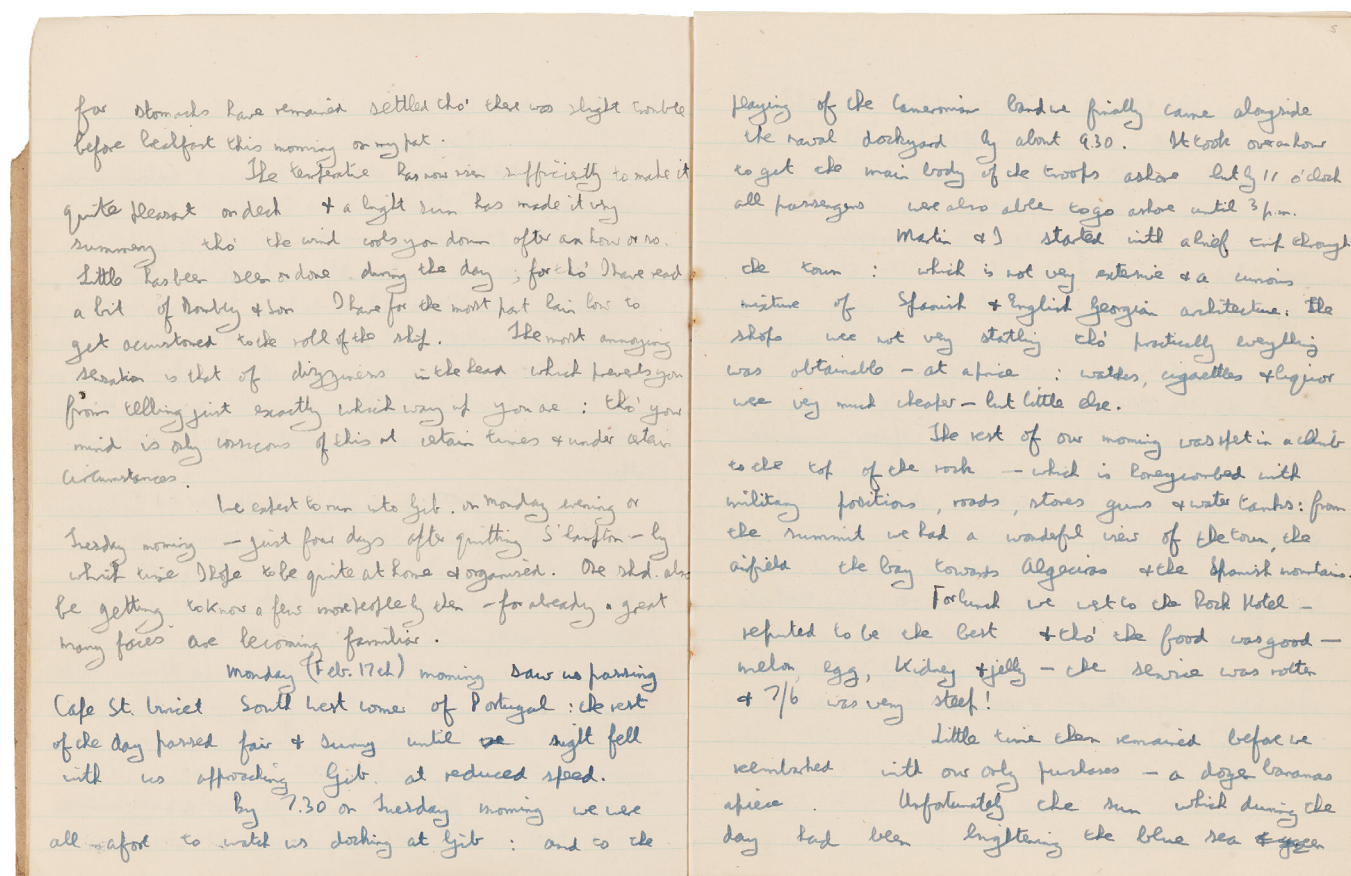 far stomachs have remained settled tho' there was slight trouble
before breakfast this morning on my part.
The temperature has now risen sufficiently to make it
quite pleasant on deck & a bright sun has made it very
summery tho' the wind cools you down after an hour or so.
Little has been seen or done during the day ; for tho' I have read
a bit of Dombey & Son I have for the most part lain low to
get accustomed to the roll of the ship. The most annoying
sensation is that of dizziness in the head which prevents you
from telling just exactly which way up you are : tho' your
mind is only conscious of this at certain times & under certain
circumstances.
We expect to run into Gib. on Monday evening or
Tuesday morning – just four days after quitting S'hampton – by
which time I hope to be quite at home & organised. One shd. also
be getting to know a few more people by then – for already a great
many faces are becoming familiar.
Monday (Feb. 17th) morning saw us passing
Cape St. Vincent South West corner of Portugal : the rest
of the day passed fair & sunny until night fell
with us approaching Gib. at reduced speed.
By 7.30 on Tuesday morning we were
all afore to watch us docking at Gib : and to the
5
playing of the Cameronian band we finally came alongside
the naval dockyard by about 9.30. It took over an hour
to get the main body of the troops ashore but by 11 o'clock
all passengers were also able to go ashore until 3 p.m.
Martin & I started with a brief trip through
the town : which is not very extensive & a curious
mixture of Spanish & English Georgian architecture. The
shops were not very startling tho' practically everything
was obtainable – at a price : watches, cigarettes & liquor
were very much cheaper – but little else.
The rest of our morning was spent in a climb
to the top of the rock – which is honeycombed with
military positions, roads, stores guns & water tanks : from
the summit we had a wonderful view of the town, the
airfield the bay towards Algeciras & the Spanish mountains.
For lunch we went to the Rock Hotel –
reputed to be the best & tho' the food was good –
melon, egg, kidney & jelly – the service was rotten
& 7/6 was very steep!
Little time then remained before we
reembarked with our only purchases – a dozen bananas
apiece. Unfortunately the sun which during the
day had been brightening the blue sea & green